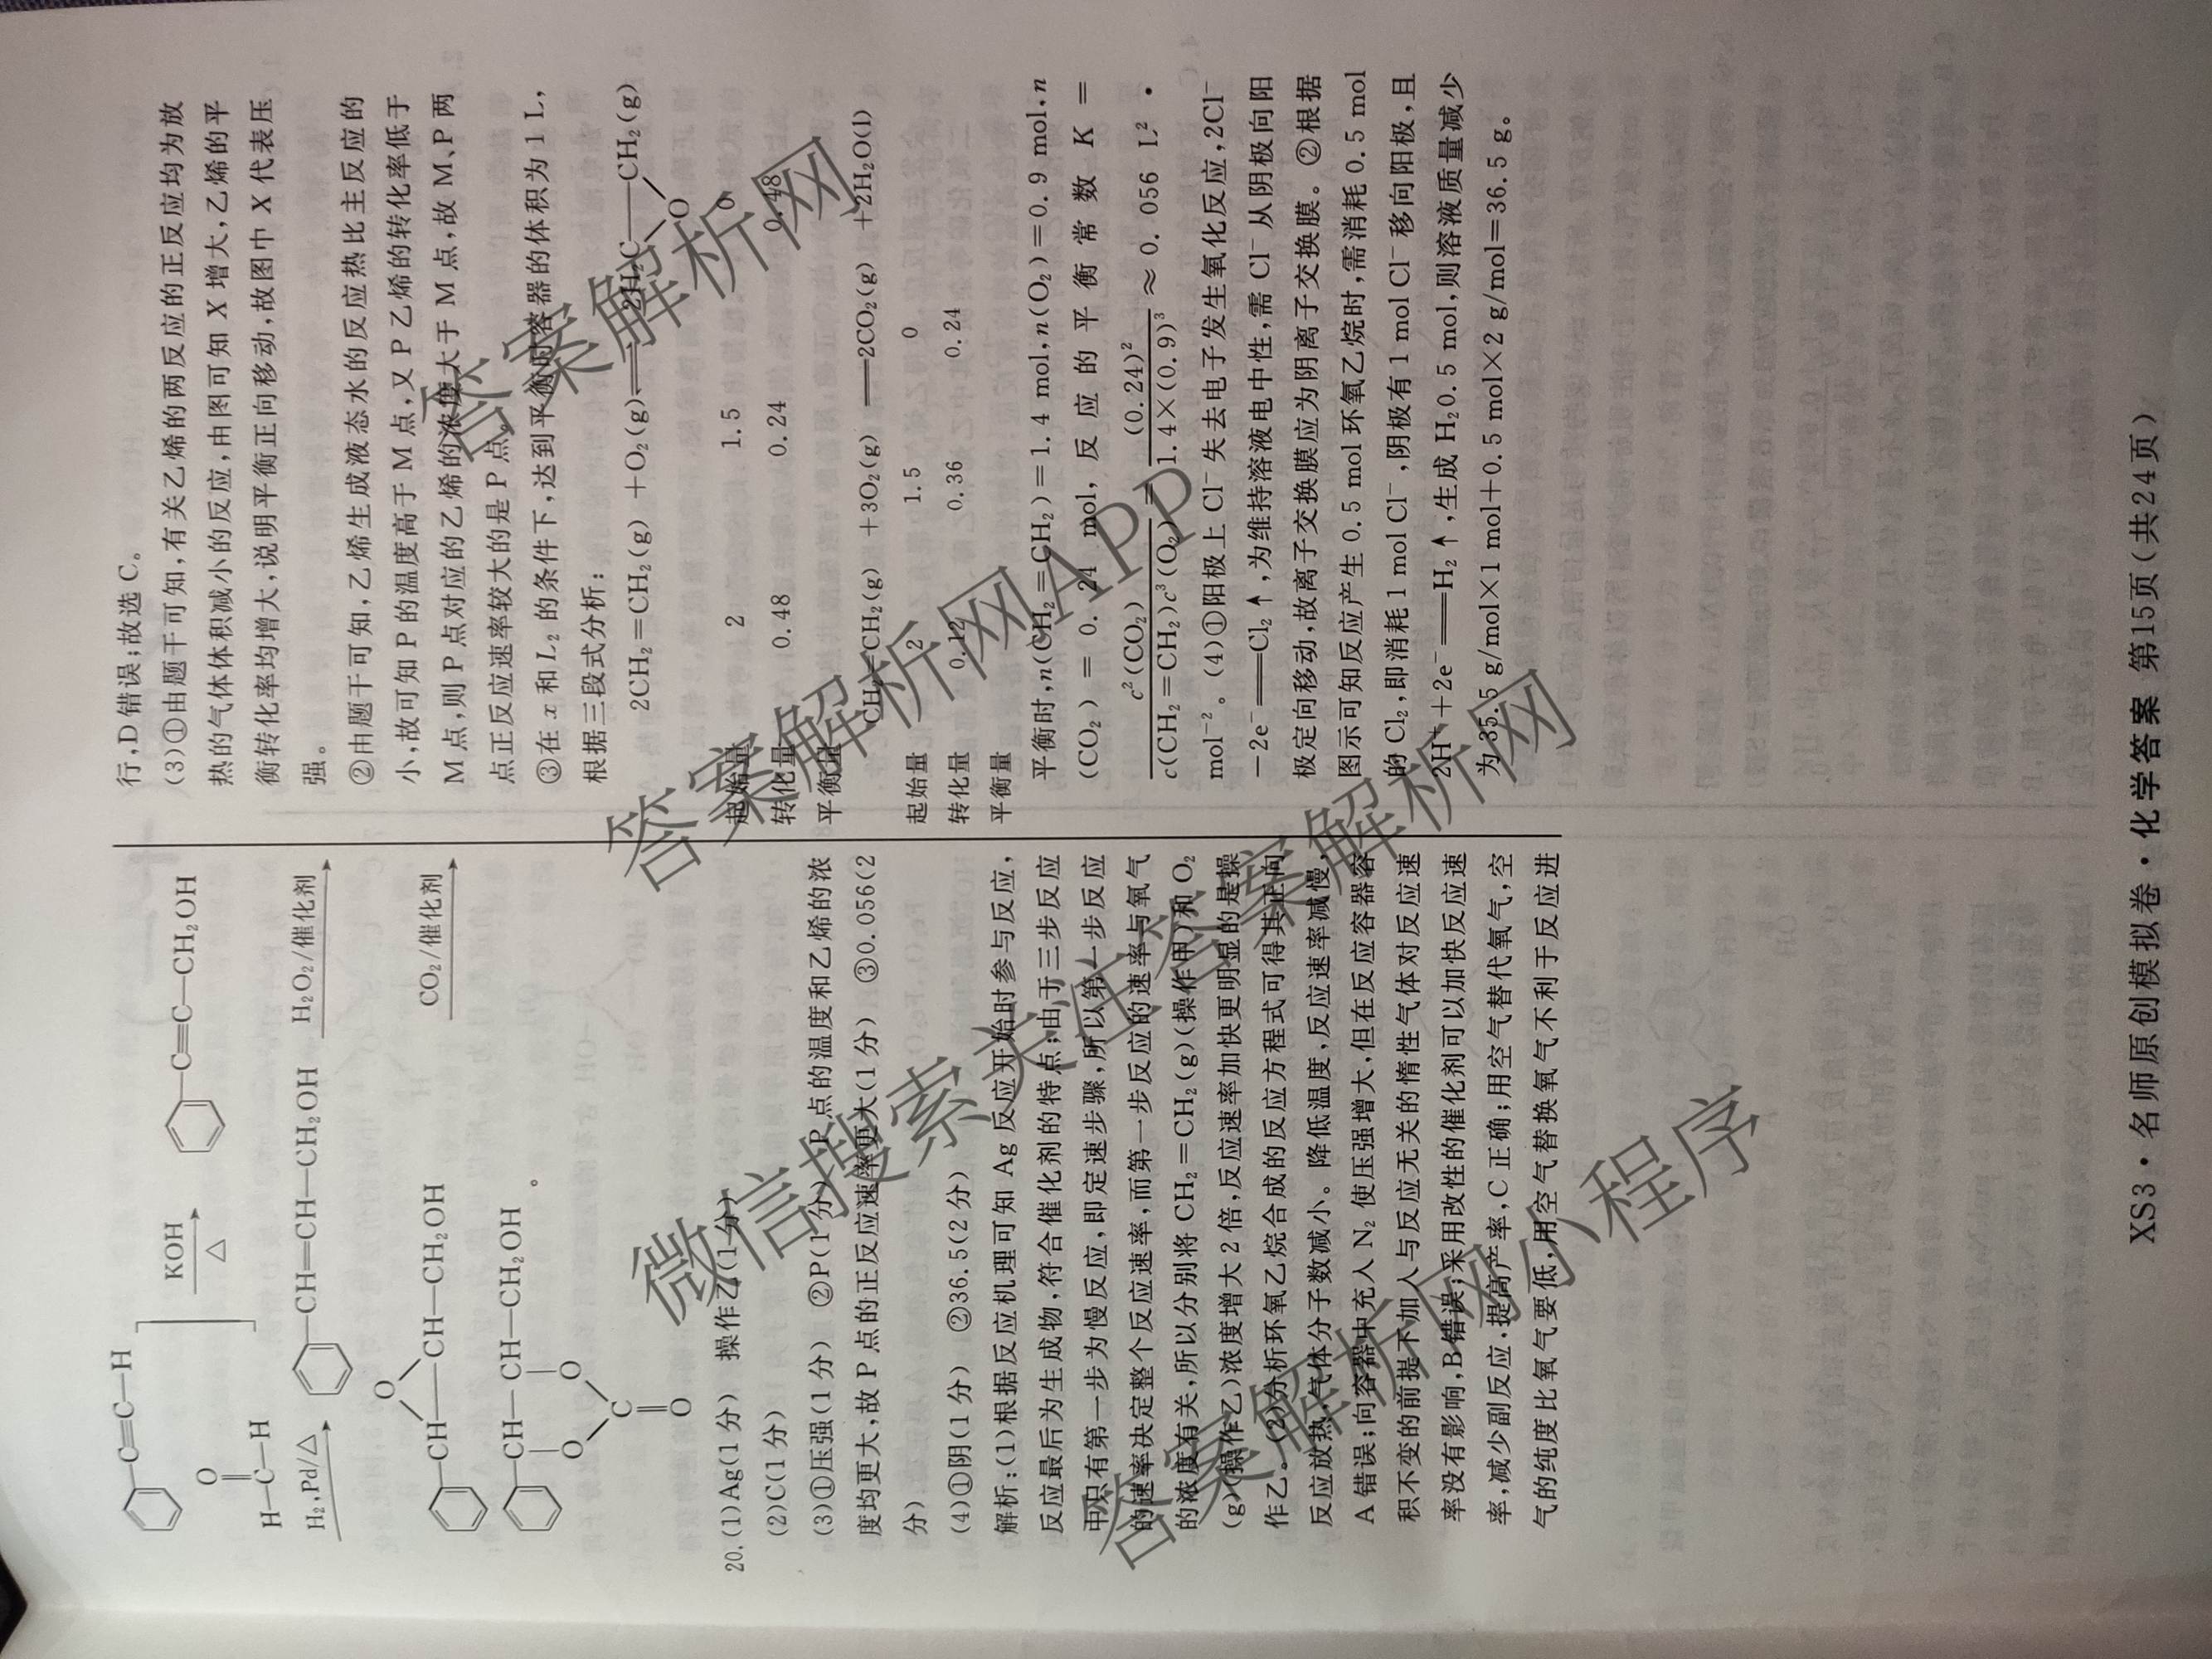 C≡C—H
O
H—C—H
KOH
△
C≡C—CH₂OH
H₂,Pd/△
CH=CH—CH₂OH
H₂O₂/催化剂
O
CH—CH—CH₂OH
CO₂/催化剂
CH—CH—CH₂OH
O O
C
O
。
20.(1)Ag(1分) 操作乙(1分)
(2)C(1分)
(3)①压强(1分) ②P(1分) P点的温度和乙烯的浓
度均更大,故P点的正反应速率更大(1分) ③0.056(2
分)
(4)①阴(1分) ②36.5(2分)
解析:(1)根据反应机理可知Ag反应开始时参与反应,
反应最后为生成物,符合催化剂的特点;由于三步反应
中只有第一步为慢反应,即定速步骤,所以第一步反应
的速率决定整个反应速率,而第一步反应的速率与氧气
的浓度有关,所以分别将CH₂=CH₂(g)(操作甲)和O₂
(g)(操作乙)浓度增大2倍,反应速率加快更明显的是操
作乙。(2)分析环氧乙烷合成的反应方程式可得其正向
反应放热,气体分子数减小。降低温度,反应速率减慢,
A错误;向容器中充入N₂使压强增大,但在反应容器容
积不变的前提下加入与反应无关的惰性气体对反应速
率没有影响,B错误;采用改性的催化剂可以加快反应速
率,减少副反应,提高产率,C正确;用空气替代氧气,空
气的纯度比氧气要低,用空气替换氧气不利于反应进
行,D错误;故选C。
(3)①由题干可知,有关乙烯的两反应的正反应均为放
热的气体体积减小的反应,由图可知X增大,乙烯的平
衡转化率均增大,说明平衡正向移动,故图中X代表压
强。
②由题干可知,乙烯生成液态水的反应热比主反应的
小,故可知P的温度高于M点,又P乙烯的转化率低于
M点,则P点对应的乙烯的浓度大于M点,故M、P两
点正反应速率较大的是P点。
③在x和L₂的条件下,达到平衡时容器的体积为1 L,
根据三段式分析:
2CH₂=CH₂(g) +O₂(g)⇌2H₂C—CH₂(g)
O
起始量 2 1.5 0
转化量 0.48 0.24 0.48
平衡量
CH₂=CH₂(g) +3O₂(g) ══2CO₂(g) +2H₂O(l)
起始量 2 1.5 0
转化量 0.12 0.36 0.24
平衡量
平衡时,n(CH₂=CH₂)=1.4 mol,n(O₂)=0.9 mol,n
(CO₂) = 0.24 mol, 反应的平衡常数 K =
c²(CO₂)/c(CH₂=CH₂)c³(O₂) = (0.24)²/1.4×(0.9)³ ≈ 0.056 L²·
mol⁻²。(4)①阳极上Cl⁻失去电子发生氧化反应,2Cl⁻
−2e⁻══Cl₂↑,为维持溶液电中性,需Cl⁻从阴极向阳
极定向移动,故离子交换膜应为阴离子交换膜。②根据
图示可知反应产生0.5 mol环氧乙烷时,需消耗0.5 mol
的Cl₂,即消耗1 mol Cl⁻,阴极有1 mol Cl⁻移向阳极,且
2H⁺+2e⁻══H₂↑,生成H₂0.5 mol,则溶液质量减少
为35.5 g/mol×1 mol+0.5 mol×2 g/mol=36.5 g。
XS3·名师原创模拟卷·化学答案 第15页(共24页)
答案解析网
答案解析网APP
微信搜索关注答案解析网
答案解析网小程序